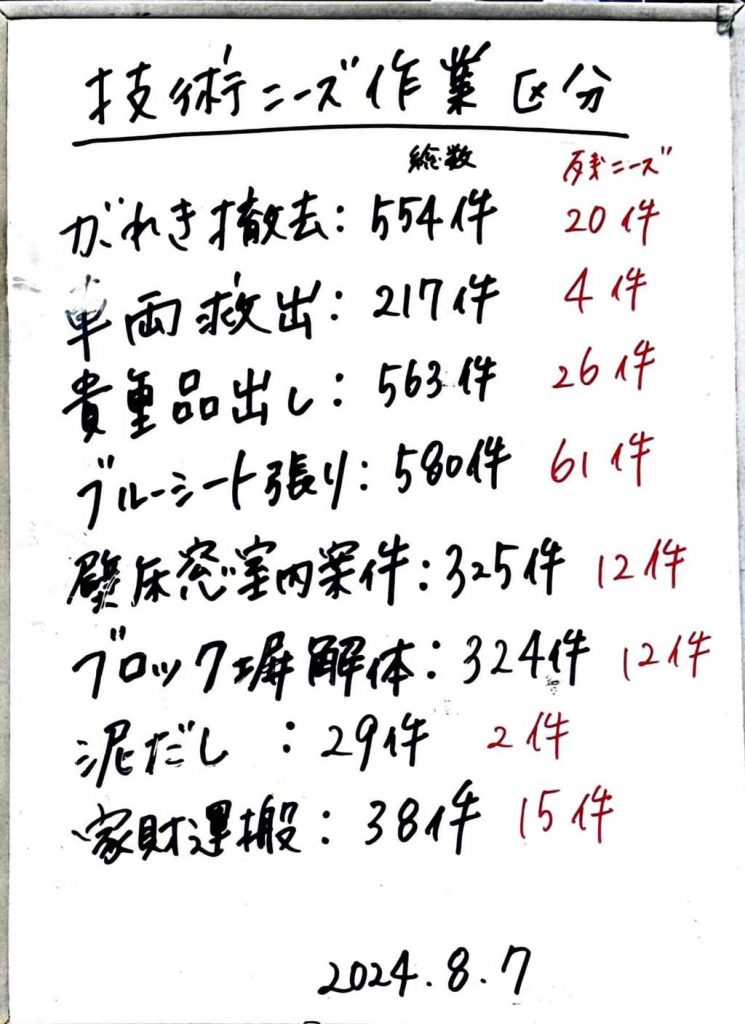 技術ニーズ作業区分
総数 残ニーズ
がれき撤去: 554件 20件
車両救出: 217件 4件
貴重品出し: 563件 26件
ブルーシート張り: 580件 61件
壁床窓室内案件: 325件 12件
ブロック塀解体: 324件 12件
泥だし : 29件 2件
家財運搬: 38件 15件
2024.8.7